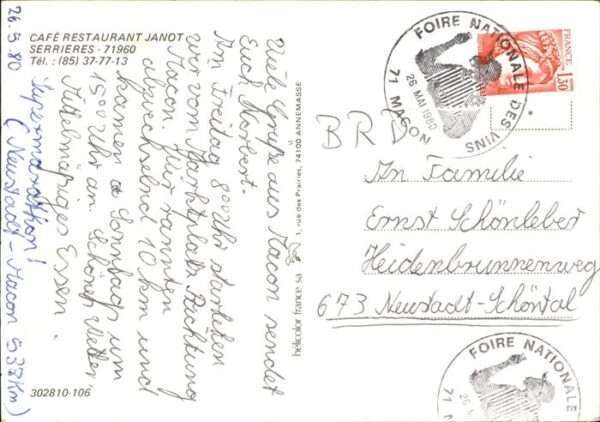 CAFÉ RESTAURANT JANOT
SERRIERES - 71960
Tél. : (85) 37-77-13
Viele Grüße aus Macon sendet
Euch Norbert.
Am Freitag 8⁰⁰ Uhr starteten
wir vom Marktplatz Richtung
Macon. Wir rannten
abwechselnd 10 km und
kamen a Sonntags um
15⁰⁰ Uhr an. Schönes Wetter,
Mittelmäßiges Essen.
26.5.80 Supermarathon!
(Neustadt-Macon 537km)
302810-106
hélicolor france sa
1, rue des Prairies, 74100 ANNEMASSE
FRANCE
1,30
FOIRE NATIONALE DES VINS
26 MAI 1980
71 MACON
BRD
An Familie
Ernst Schönleber
Heidenbrunnenweg
673 Neustadt-Schöntal
FOIRE NATIONALE
26
71